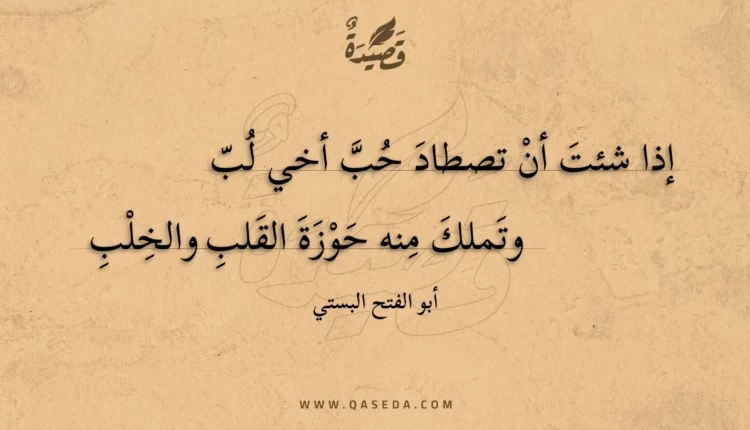 قَصِيْدَةٌ
إذا شئتَ أنْ تصطادَ حُبَّ أخي لُبّ
وتَملكَ مِنه حَوْزَةَ القَلبِ والخِلْبِ
أبو الفتح البستي
WWW.QASEDA.COM